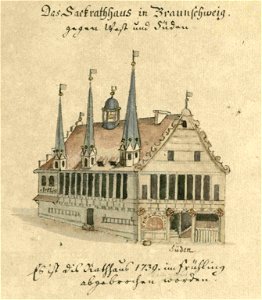 Das Sackrathhaus in Braunschweig.
gegen West und Süden
Süden
Es ist dis Rathhaus 1739. im Frühling
abgebrochen worden.